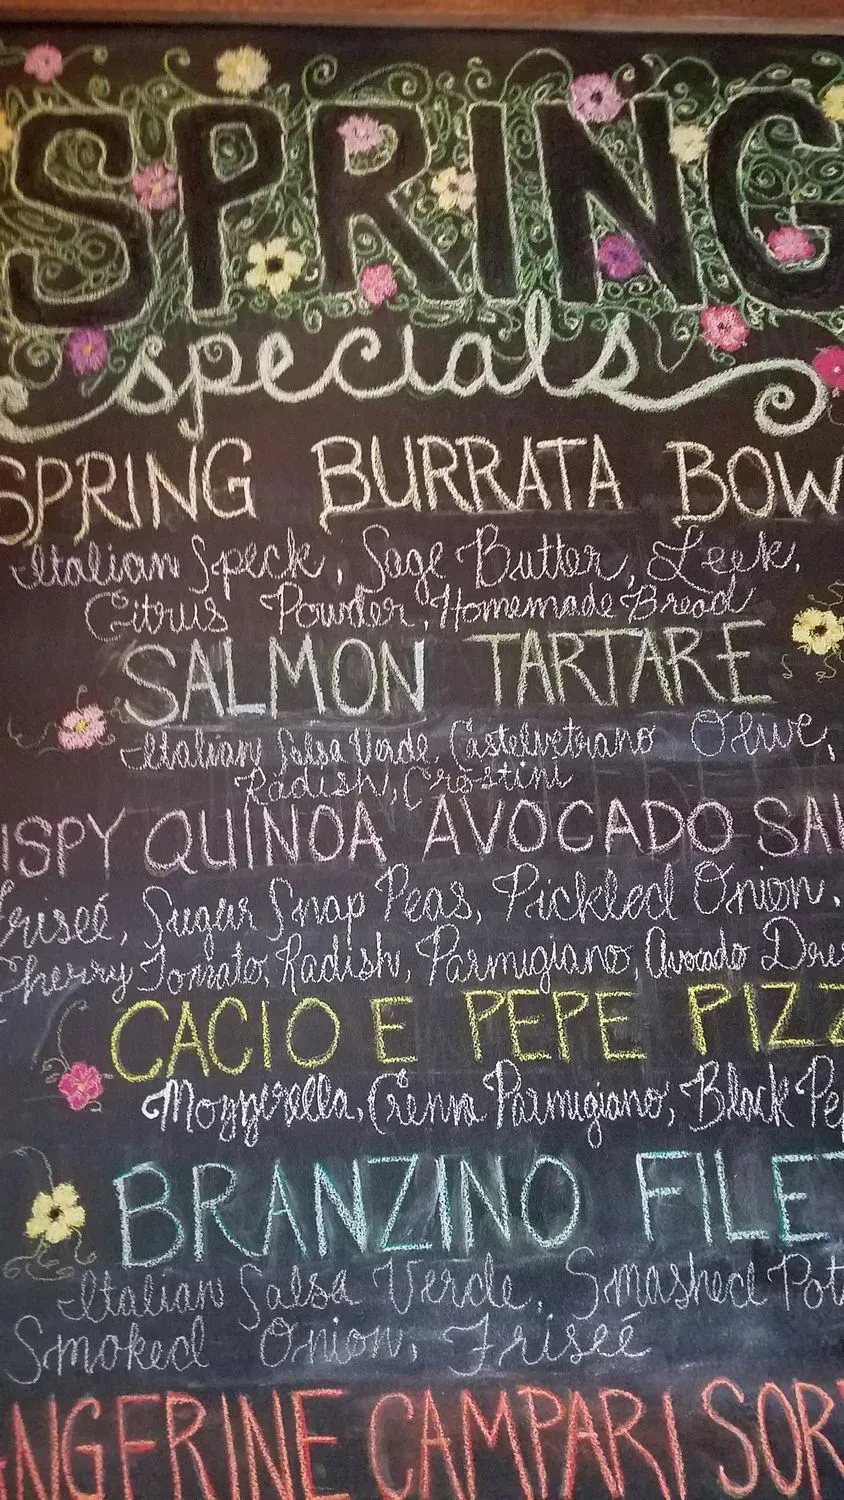 SPRING
specials
SPRING BURRATA BOW
Italian Speck, Sage Butter, Leek,
Citrus Powder, Homemade Bread
SALMON TARTARE
Italian Salsa Verde, Castelvetrano Olive,
Radish, Crostini
ISPY QUINOA AVOCADO SAL
Friseé, Sugar Snap Peas, Pickled Onion,
Cherry Tomato, Radish, Parmigiano, Avocado Dre
CACIO E PEPE PIZZ
Mozzerella, Crema Parmigiano, Black Pep
BRANZINO FILET
Italian Salsa Verde, Smashed Pot
Smoked Onion, Friseé
ANGERINE CAMPARI SOR